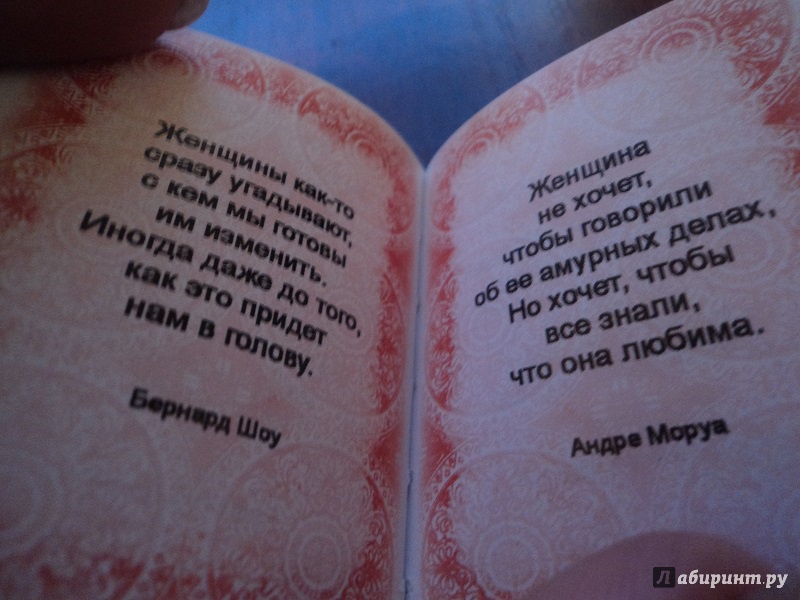 Женщины как-то
сразу угадывают,
с кем мы готовы
им изменить.
Иногда даже до того,
как это придет
нам в голову.
Бернард Шоу
Женщина
не хочет,
чтобы говорили
об ее амурных делах,
Но хочет, чтобы
все знали,
что она любима.
Андре Моруа
Лабиринт.ру